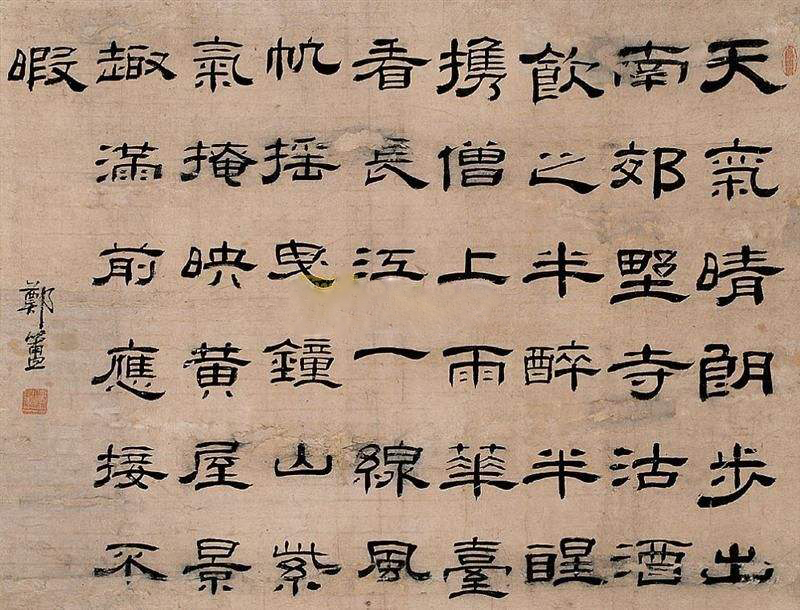 天氣晴朗步出
南郊墅寺沽酒
飲之半醉半醒
攜僧上雨華臺
看長江一線風
帆搖曳鐘山紫
氣掩映黃屋景
趣滿前應接不
暇
鄭簠